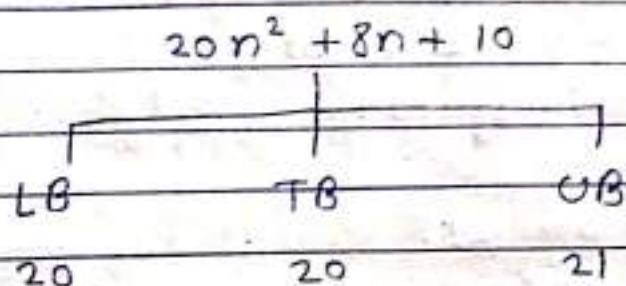 20n² + 8n + 10
LB TB UB
20 20 21